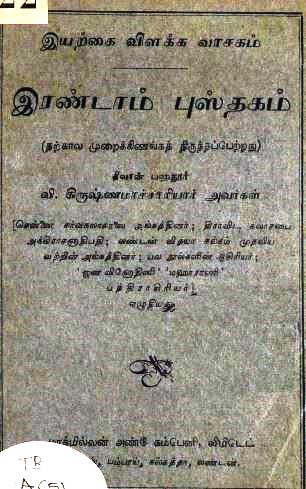 22
இயற்கை விளக்க வாசகம்
இரண்டாம் புஸ்தகம்
(தற்கால முறைக்கிணங்கத் திருத்தப்பெற்றது)
திவான் பஹதூர்
வி. கிருஷ்ணமாச்சாரியார் அவர்கள்
[சென்னை சர்வகலாசாலை அங்கத்தினர்; திராவிட
அக்கிராசனாதிபதி; லண்டன் விதயா சங்கம் முதலிய
வற்றின் அங்கத்தினர்; பல நூல்களின் ஆசிரியர்;
'ஜன விநோதினி' 'மஹாராணி'
பத்திராதிபர்]
எழுதியது
மாக்மில்லன் அண்டு கம்பெனி, லிமிடெட்
பம்பாய், கல்கத்தா, லண்டன்.
TR